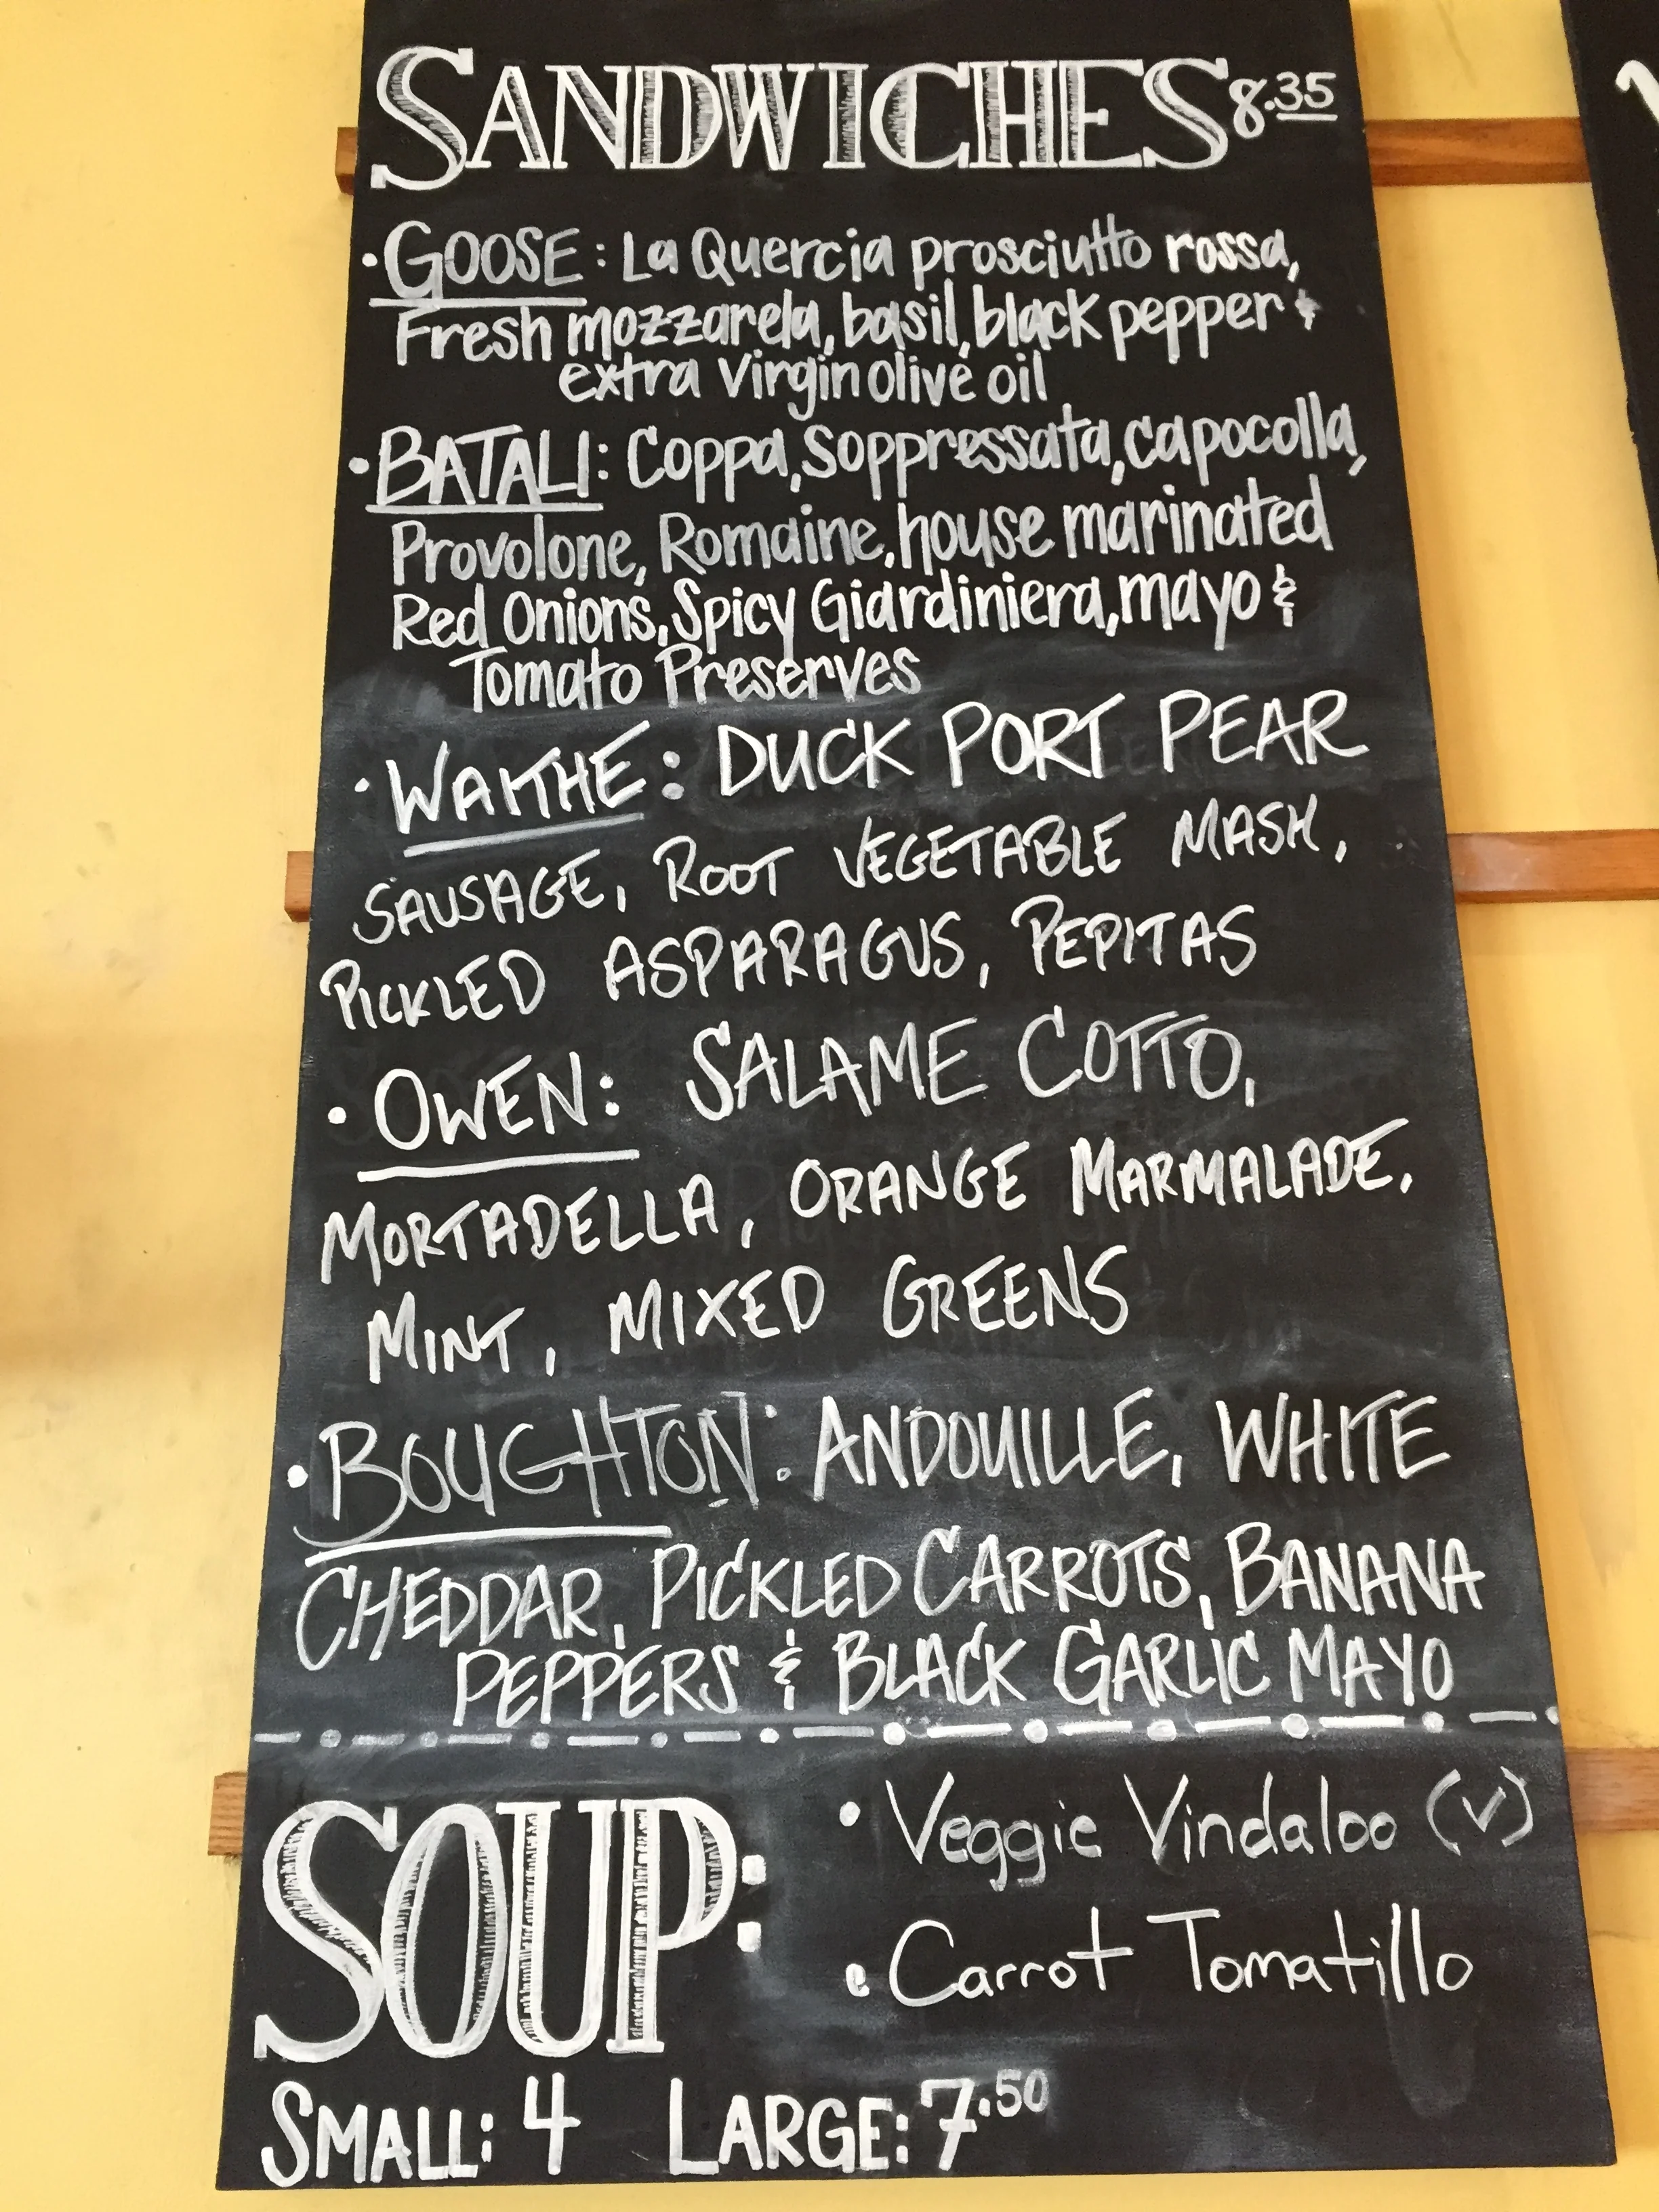 SANDWICHES 8.35
• GOOSE: La Quercia prosciutto rossa,
Fresh mozzarela, basil, black pepper &
extra Virgin olive oil
• BATALI: Coppa, Soppressata, capocolla,
Provolone, Romaine, house marinated
Red Onions, Spicy Giardiniera, mayo &
Tomato Preserves
• WAITHE: DUCK PORT PEAR
SAUSAGE, ROOT VEGETABLE MASH,
PICKLED ASPARAGUS, PEPITAS
• OWEN: SALAME COTTO,
MORTADELLA, ORANGE MARMALADE,
MINT, MIXED GREENS
• BOUGHTON: ANDOUILLE, WHITE
CHEDDAR, PICKLED CARROTS, BANANA
PEPPERS & BLACK GARLIC MAYO
SOUP:
• Veggie Vindaloo (V)
• Carrot Tomatillo
SMALL: 4 LARGE: 7.50